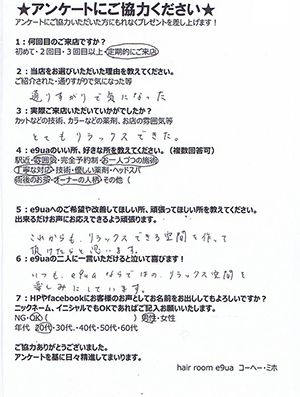 ★アンケートにご協力ください★
アンケートにご協力いただいた方にもれなくプレゼントを差し上げます！
1：何回目のご来店ですか？
初めて・2回目・3回目以上・定期的にご来店
2：当店をお選びいただいた理由を教えてください。
ご紹介された・通りすがりで気になった等
通りすがりで気になった
3：実際ご来店いただいていかがでしたか？
カットなどの技術、カラーなどの薬剤、お店の雰囲気等
とてもリラックスできた。
4：e9uaのいい所、好きな所を教えてください。（複数回答可）
駅近・雰囲気・完全予約制・お一人づつの施術
丁寧な対応・技術・優しい薬剤・ヘッドスパ
術後のお茶・オーナーの人柄・その他（
5：e9uaへのご希望や改善してほしい所、頑張ってほしい所を教えてください。
出来るだけお声にお応えできるよう頑張ります。
これからも、リラックスできる空間を作って
頂けたらと思います。
6：e9uaの二人に一言いただけると泣いて喜びます！
いつも、e9uaならではの、リラックス空間を
楽しみにしています。
7：HPやfacebookにお客様のお声としてお名前をお出ししてもよろしいですか？
ニックネーム、イニシャルでもOKであればご記入お願いいたします。
NG・OK（ ）男性・女性
年代 20代・30代・40代・50代・60代
ご協力ありがとうございました。
アンケートを基に日々精進してまいります。
hair room e9ua コーヘー・ミホ